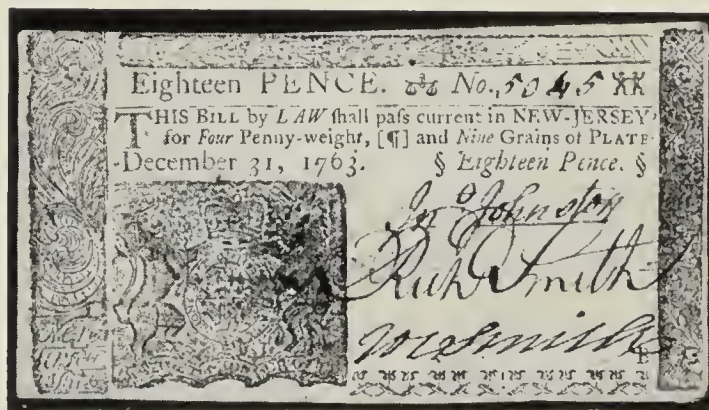 Eighteen PENCE. No. 5045
THIS BILL by LAW ſhall paſs current in NEW-JERSEY
for Four Penny-weight, [¶] and Nine Grains of PLATE
December 31, 1763. § Eighteen Pence. §
Jno Johnston
Richd Smith